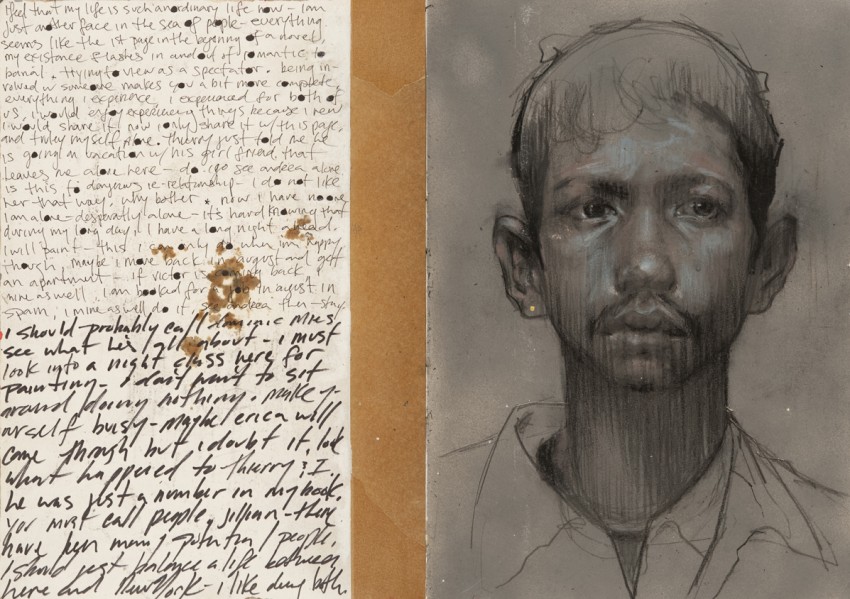 I feel that my life is such an ordinary life now - I am
just another face in the sea of people - everything
seems like the 1st page in the begining of a novel,
my existence & tastes in and out of romantic to
banal. trying to view as a spectator. being in-
volved w someone makes you a bit more completely,
everything i experience, i experienced for both of
us, i would enjoy experiencing things because i knew
i would share it, now i only share it w/ this page,
and truley myself alone. thierry just told me he
is going on vacation w/ his girl friend, that
leaves me alone here - do i go see andrea alone
is this to dangerous ie-relationship - i do not like
her that way, why bother, now i have no one
I am alone - desperatly alone - it's hard knowing that
during my long day, I have a long night ahead.
I will paint - this i can only do when im happy
though, maybe i move back in august and get
an apartment - if victor is coming back,
mine as well. i am booked for in august in
spain, i mine as well do it, see andrea then - stay.
i should probably call dominic mres
see what he's all about - i must
look into a night class here for
painting - i dont want to sit
around doing nothing. make y-
urself busy - maybe erica will
come through but i doubt it, look
what happened to thierry & I,
he was just a number in my book.
you must call people, jillian - they
have been many potential people,
I should just balance a life between
here and New York - i like doing both.